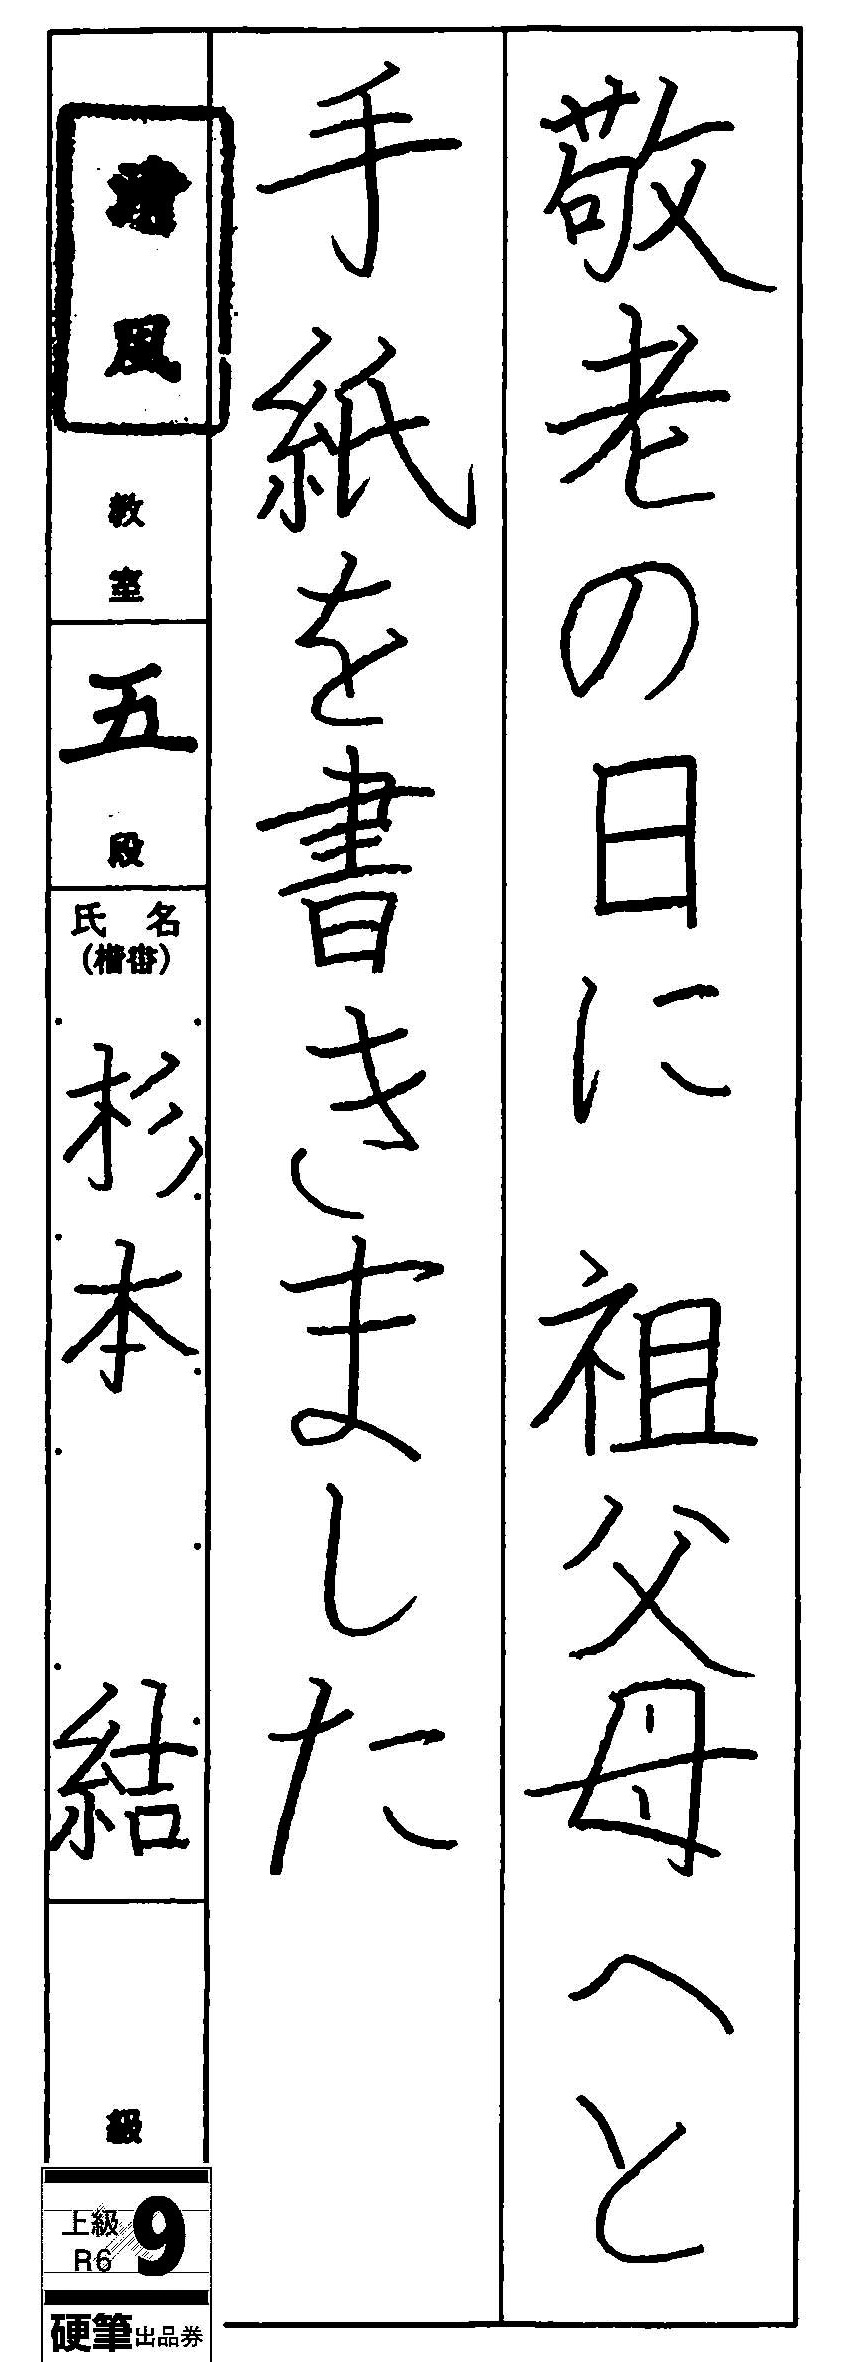 敬老の日に 祖父母へと
手紙を書きました
風
教室
五
段
氏名
(楷書)
杉本 結
級
上級
R6
9
硬筆出品券